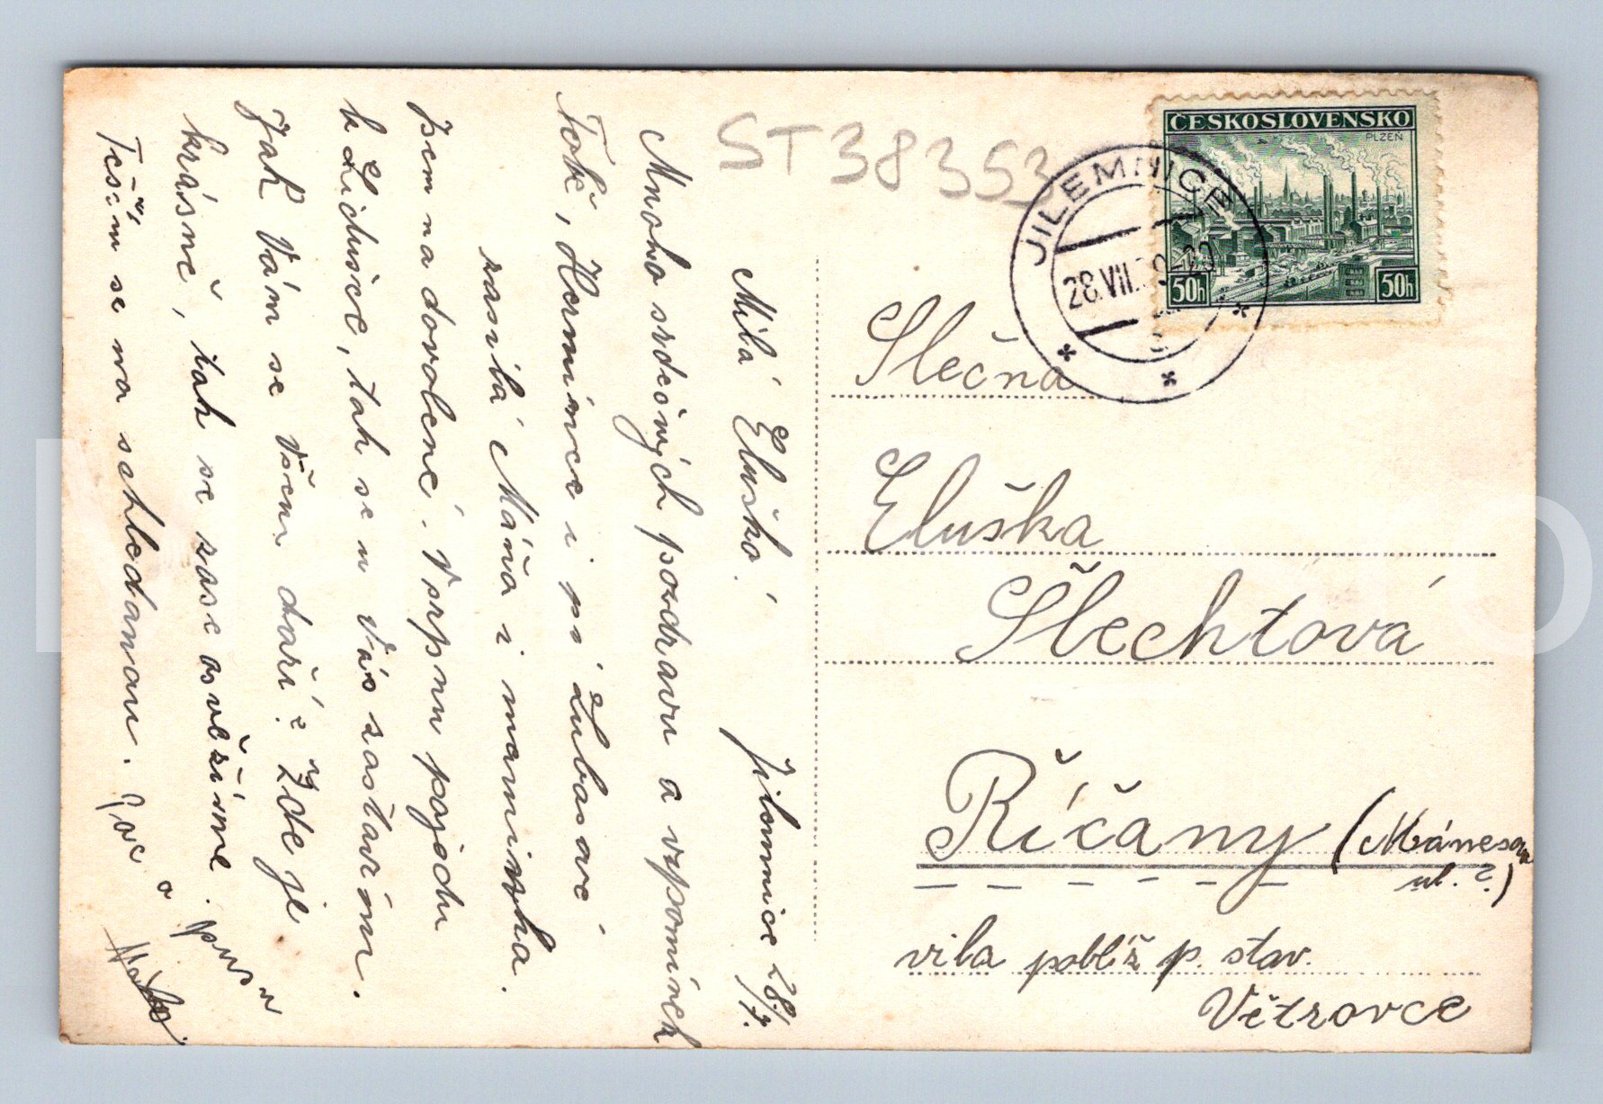 ST 38353
ČESKOSLOVENSKO
PLZEŇ
50h 50h
JILEMNICE
28.VII.39-20
Jilemnice 28./7.
Milá Eluško!
Mnoho srdečných pozdravů a vzpomínek
Tobě, Hermínce i pí Lubasové
zasílá Máňa i maminka.
Jsem na dovolené. V srpnu pojedu
k Lidušce, tak se u Vás zastavím.
Jak Vám se všem daří? Zde je
krásně, tak se zase osvěžíme.
Těším se na shledanou.
a
pusu
Slečna
Eluška
Šlechtová
Říčany (Mánesova
ul.?)
vila poblíž p. stav.
Větrovce